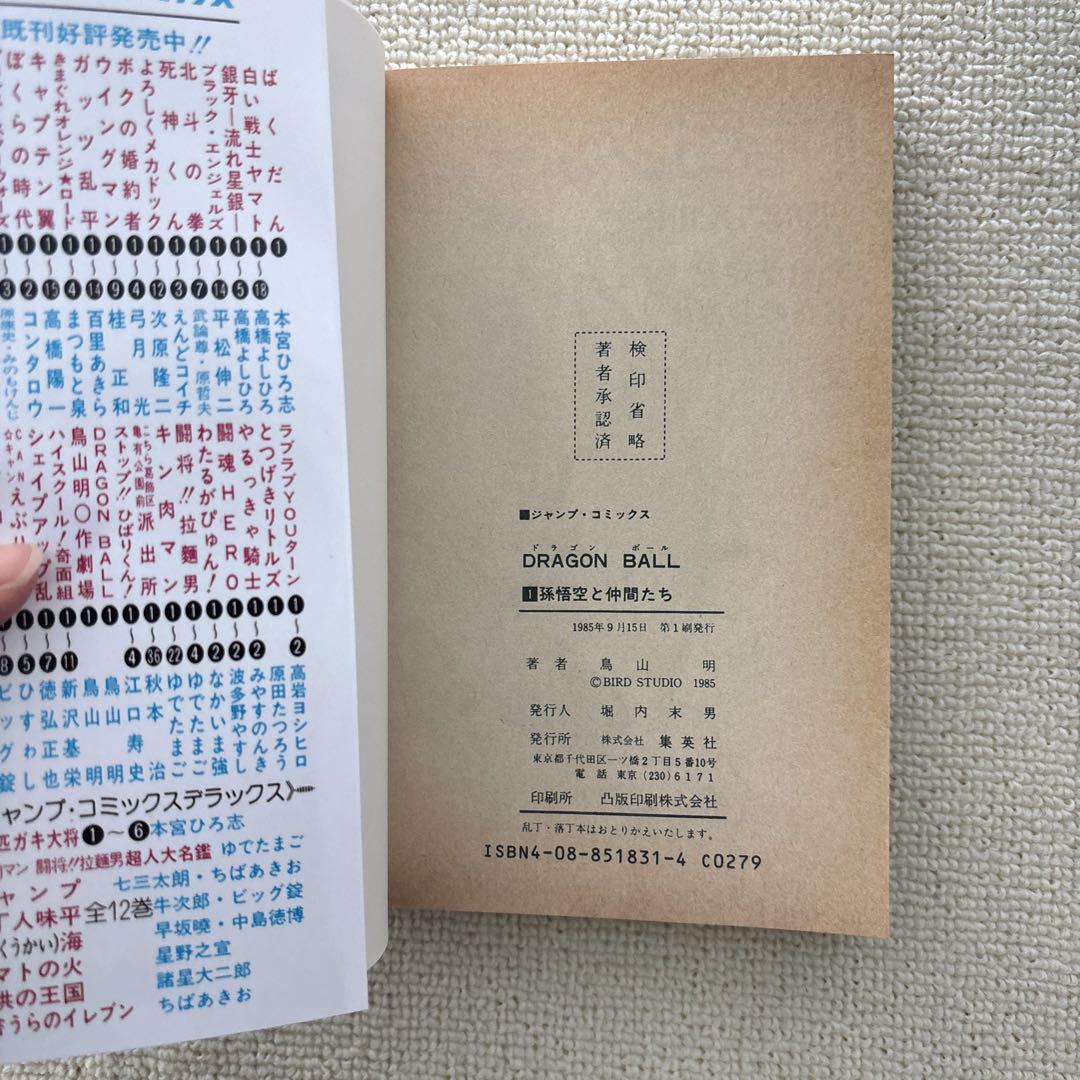 既刊好評発売中!!
ばくだん ❶ 本宮ひろ志
白い戦士ヤマト ❶〜⓲ 高橋よしひろ
銀牙―流れ星銀― ❶〜❺ 高橋よしひろ
ブラック・エンジェルズ ❶〜⓮ 平松伸二
北斗の拳 ❶〜❼ 武論尊・原哲夫
死神くん ❶〜❸ えんどコイチ
よろしくメカドック ❶〜⓬ 次原隆二
ボクの婚約者 ❶〜❹ 弓月光
ウイングマン ❶〜❾ 桂正和
ガッツ乱平 ❶〜⓮ 百里あきら
きまぐれオレンジ★ロード ❶〜❹ まつもと泉
キャプテン翼 ❶〜⓯ 高橋陽一
ぼくらの時代 ❶〜❷ コンタロウ
❶〜❸ 原康史・みのもけんじ
ラブラブYOUターン ❶〜❷ 高岩ヨシヒロ
とつげきウリトルズ ❶ 原田たつろう
やるっきゃ騎士 ❶〜❷ みやすのんき
闘魂HERO ❶〜❷ 波多野やすし
わたるがぴゅん! ❶〜❷ なかいま強
闘将!!拉麵男 ❶〜❹ ゆでたまご
キン肉マン ❶〜㉒ ゆでたまご
こちら葛飾区亀有公園前派出所 ❶〜㊱ 秋本治
ストップ!!ひばりくん! ❶〜❹ 江口寿史
DRAGON BALL ❶ 鳥山明
鳥山明〇作劇場 ❶ 鳥山明
ハイスクール!奇面組 ❶〜⓫ 新沢基栄
シェイプアップ乱 ❶〜❼ 徳弘正也
ャンプ・コミックスデラックス》
匹ガキ大将❶〜❻本宮ひろ志
マン 闘将!!拉麵男超人大名鑑 ゆでたまご
ャンプ 七三太朗・ちばあきお
丁人味平全12巻牛次郎・ビッグ錠
くうかい)海 早坂暁・中島徳博
マトの火 星野之宣
供の王国 諸星大二郎
うらのイレブン ちばあきお
検印省略
著者承認済
■ジャンプ・コミックス
ドラゴン ボール
DRAGON BALL
1孫悟空と仲間たち
1985年9月15日 第1刷発行
著者 鳥山 明
©BIRD STUDIO 1985
発行人 堀内末男
発行所 株式会社 集英社
東京都千代田区一ツ橋2丁目5番10号
電話 東京(230)6171
印刷所 凸版印刷株式会社
乱丁・落丁本はおとりかえいたします。
ISBN4-08-851831-4 C0279